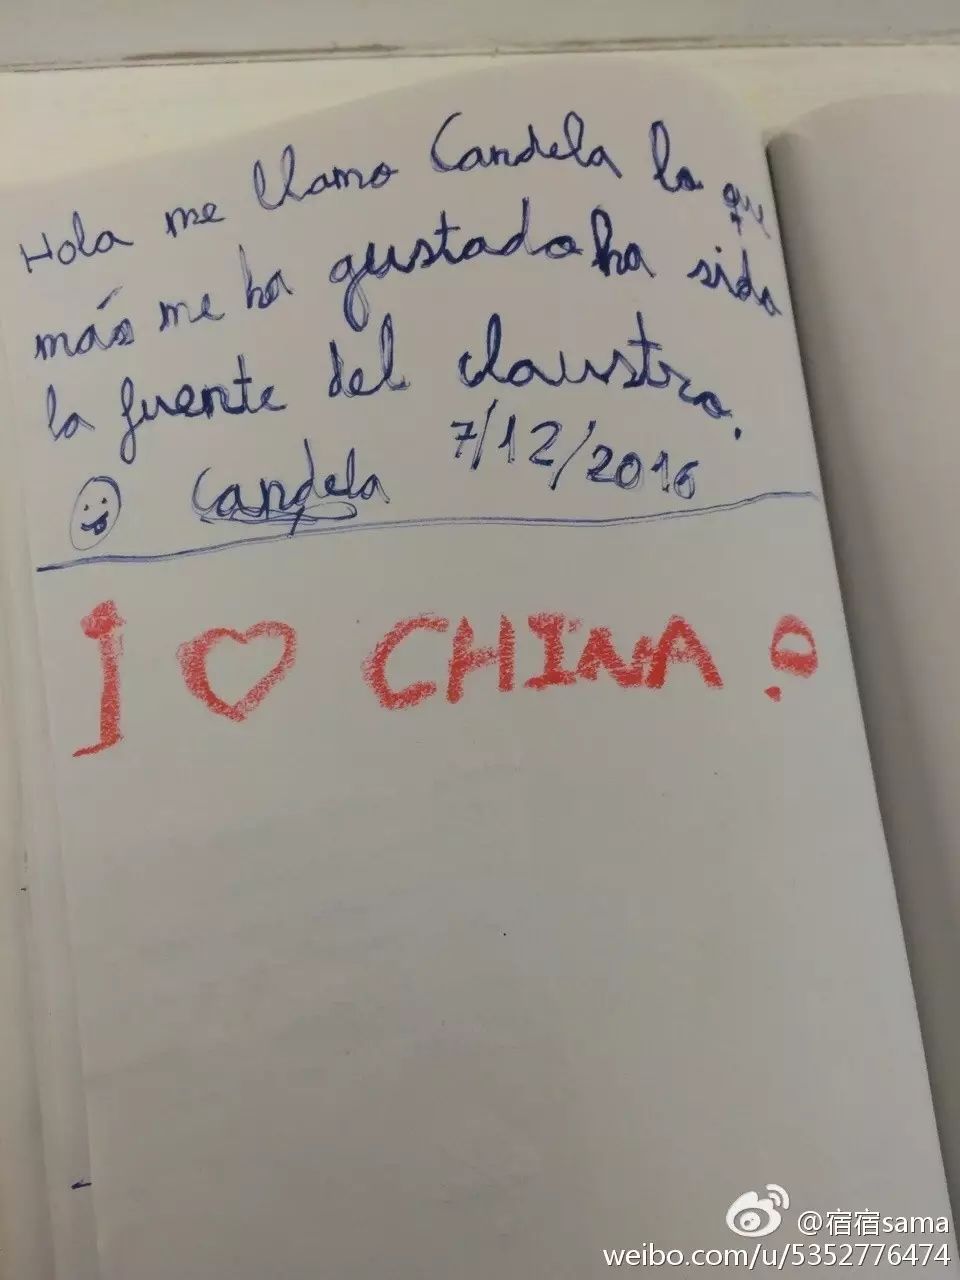 Hola me llamo Candela lo que
más me ha gustado ha sido
la fuente del claustro.
Candela 7/12/2016
I ♡ CHINA!
@宿宿sama
weibo.com/u/5352776474